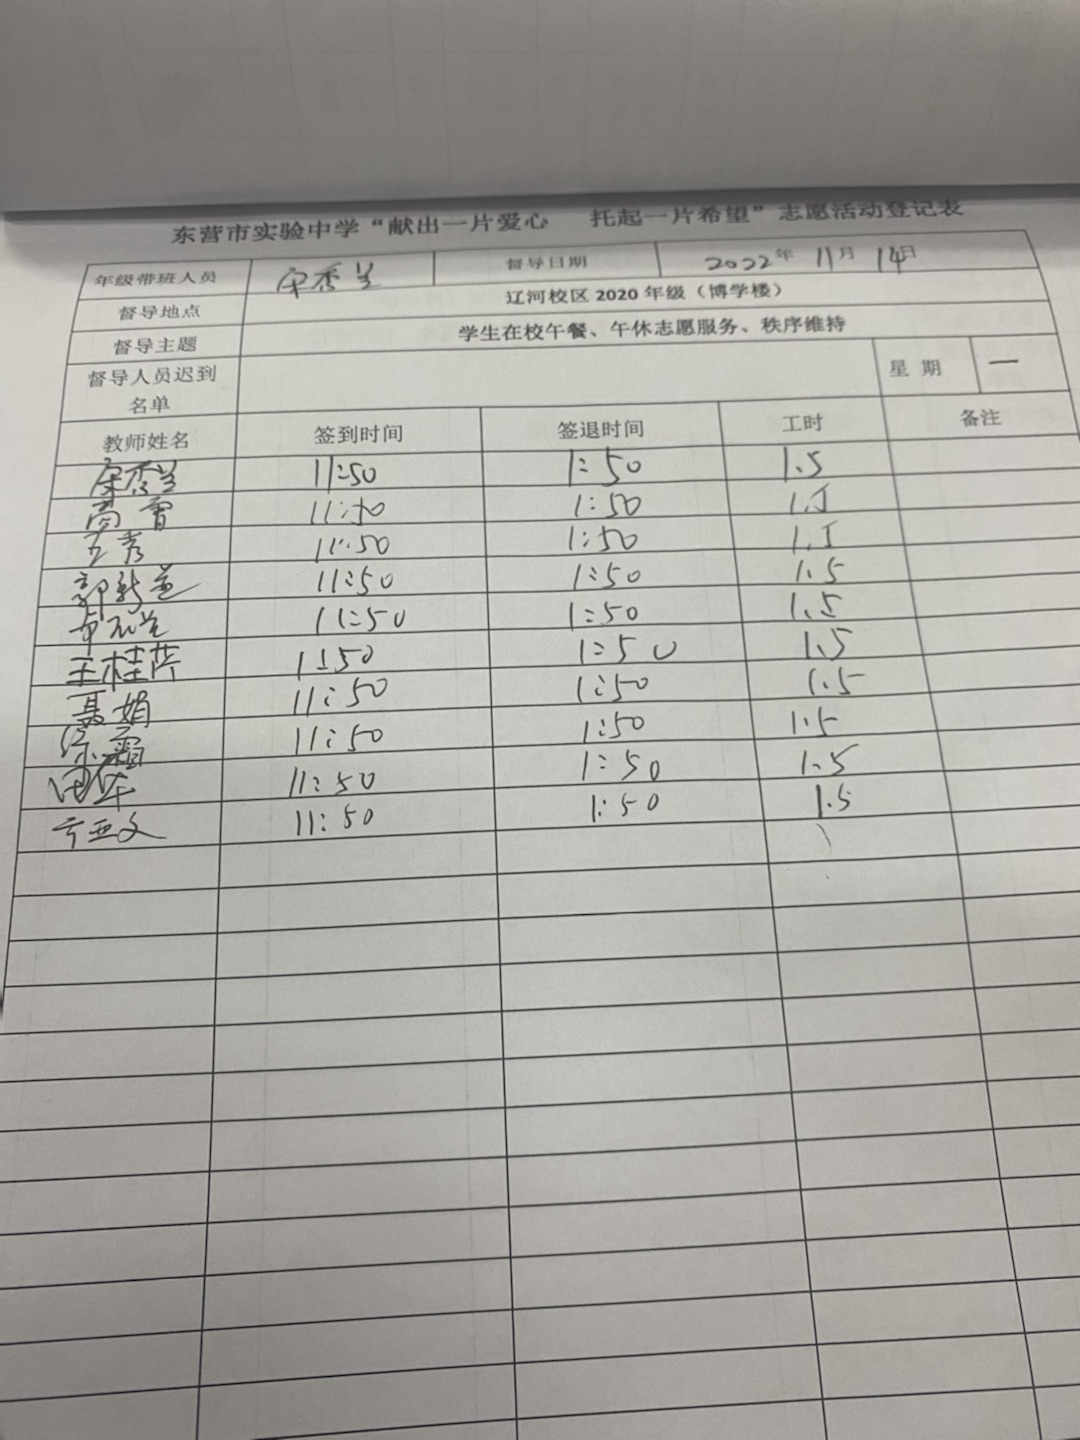 东营市实验中学“献出一片爱心 托起一片希望”志愿活动登记表
年级带班人员 宋秀兰 督导日期 2022年 11月 14日
督导地点 辽河校区 2020 年级（博学楼）
督导主题 学生在校午餐、午休志愿服务、秩序维持
督导人员迟到名单 星 期 一
教师姓名 签到时间 签退时间 工时 备注
宋秀兰 11:50 1:50 1.5
11:50 1:50 1.5
11:50 1:50 1.5
郭新 11:50 1:50 1.5
11:50 1:50 1.5
王桂芹 11:50 1:50 1.5
聂娟 11:50 1:50 1.5
11:50 1:50 1.5
田华 11:50 1:50 1.5
亚文 11:50 1:50 1.5